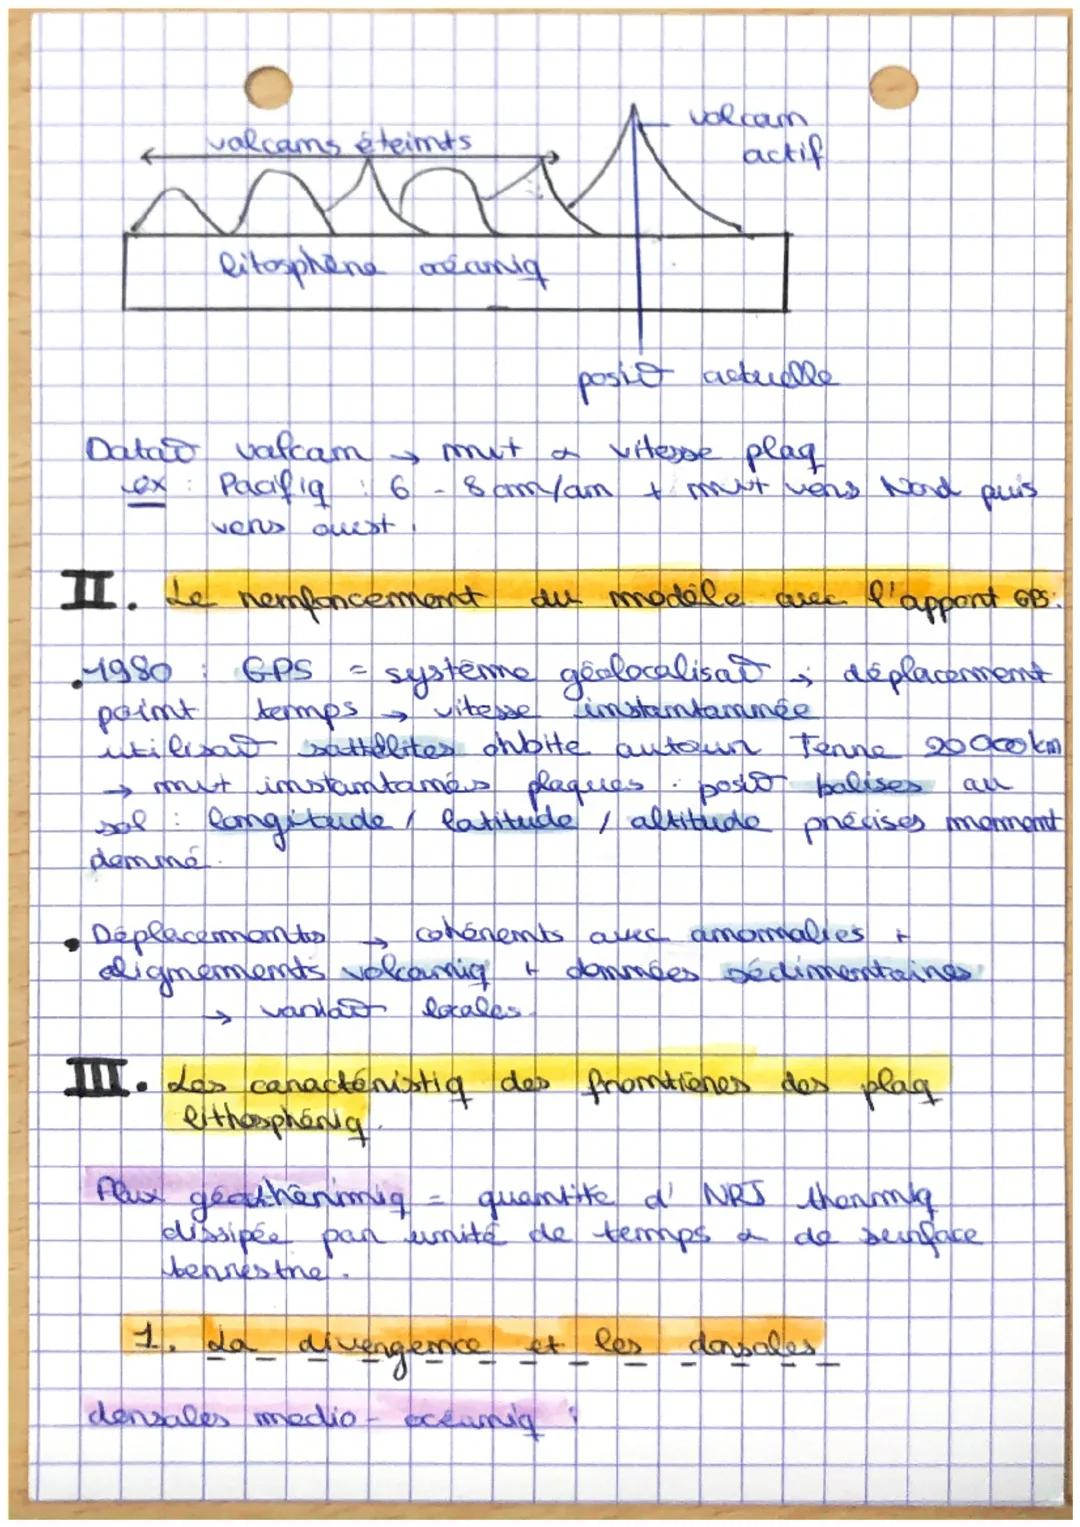 volcan
actif
volcans éteints
litosphère océaniq
posit° actuelle
Datat° volcan → mvt & vitesse plaq
ex : Pacifiq : 6 - 8 cm/an + mvt vers Nord puis
vers ouest.
II. Le renforcement du modèle avec l'apport GPS.
1980 : GPS = système géolocalisat° ; déplacement
point temps → vitesse instantannée
utilisat° sattélites orbite autour Terre 20 000 km
→ mvt instantanés plaques : posit° balises au
sol : longitude / latitude / altitude précises moment
donné.
• Déplacements → cohérents avec anomalies +
alignements volcaniq + données sédimentaires
→ variat° locales.
III. Les caractéristiq des frontières des plaq
lithosphériq.
Flux géothérmiq = quantité d'NRJ thermiq
dissipée par unité de temps & de surface
terrestre.
1. La divergence et les dorsales
dorsales medio-océaniq :